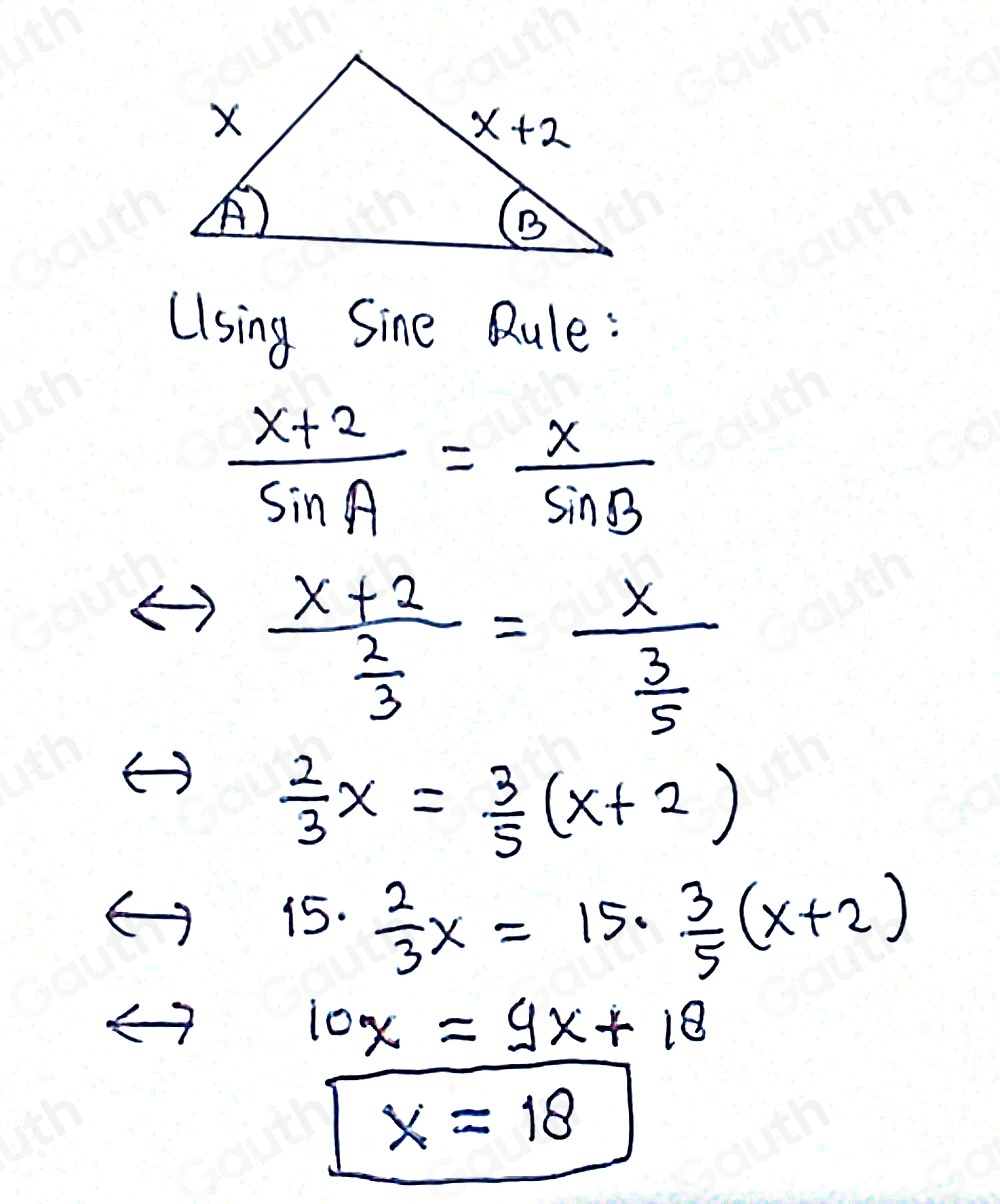 x x+2
A B
Using Sine Rule:
x+2/sin A = x/sin B
↔ x+2/(2/3) = x/(3/5)
↔ 2/3 x = 3/5 (x+2)
↔ 15· 2/3 x = 15· 3/5 (x+2)
↔ 10x = 9x+18
x = 18
Gauth